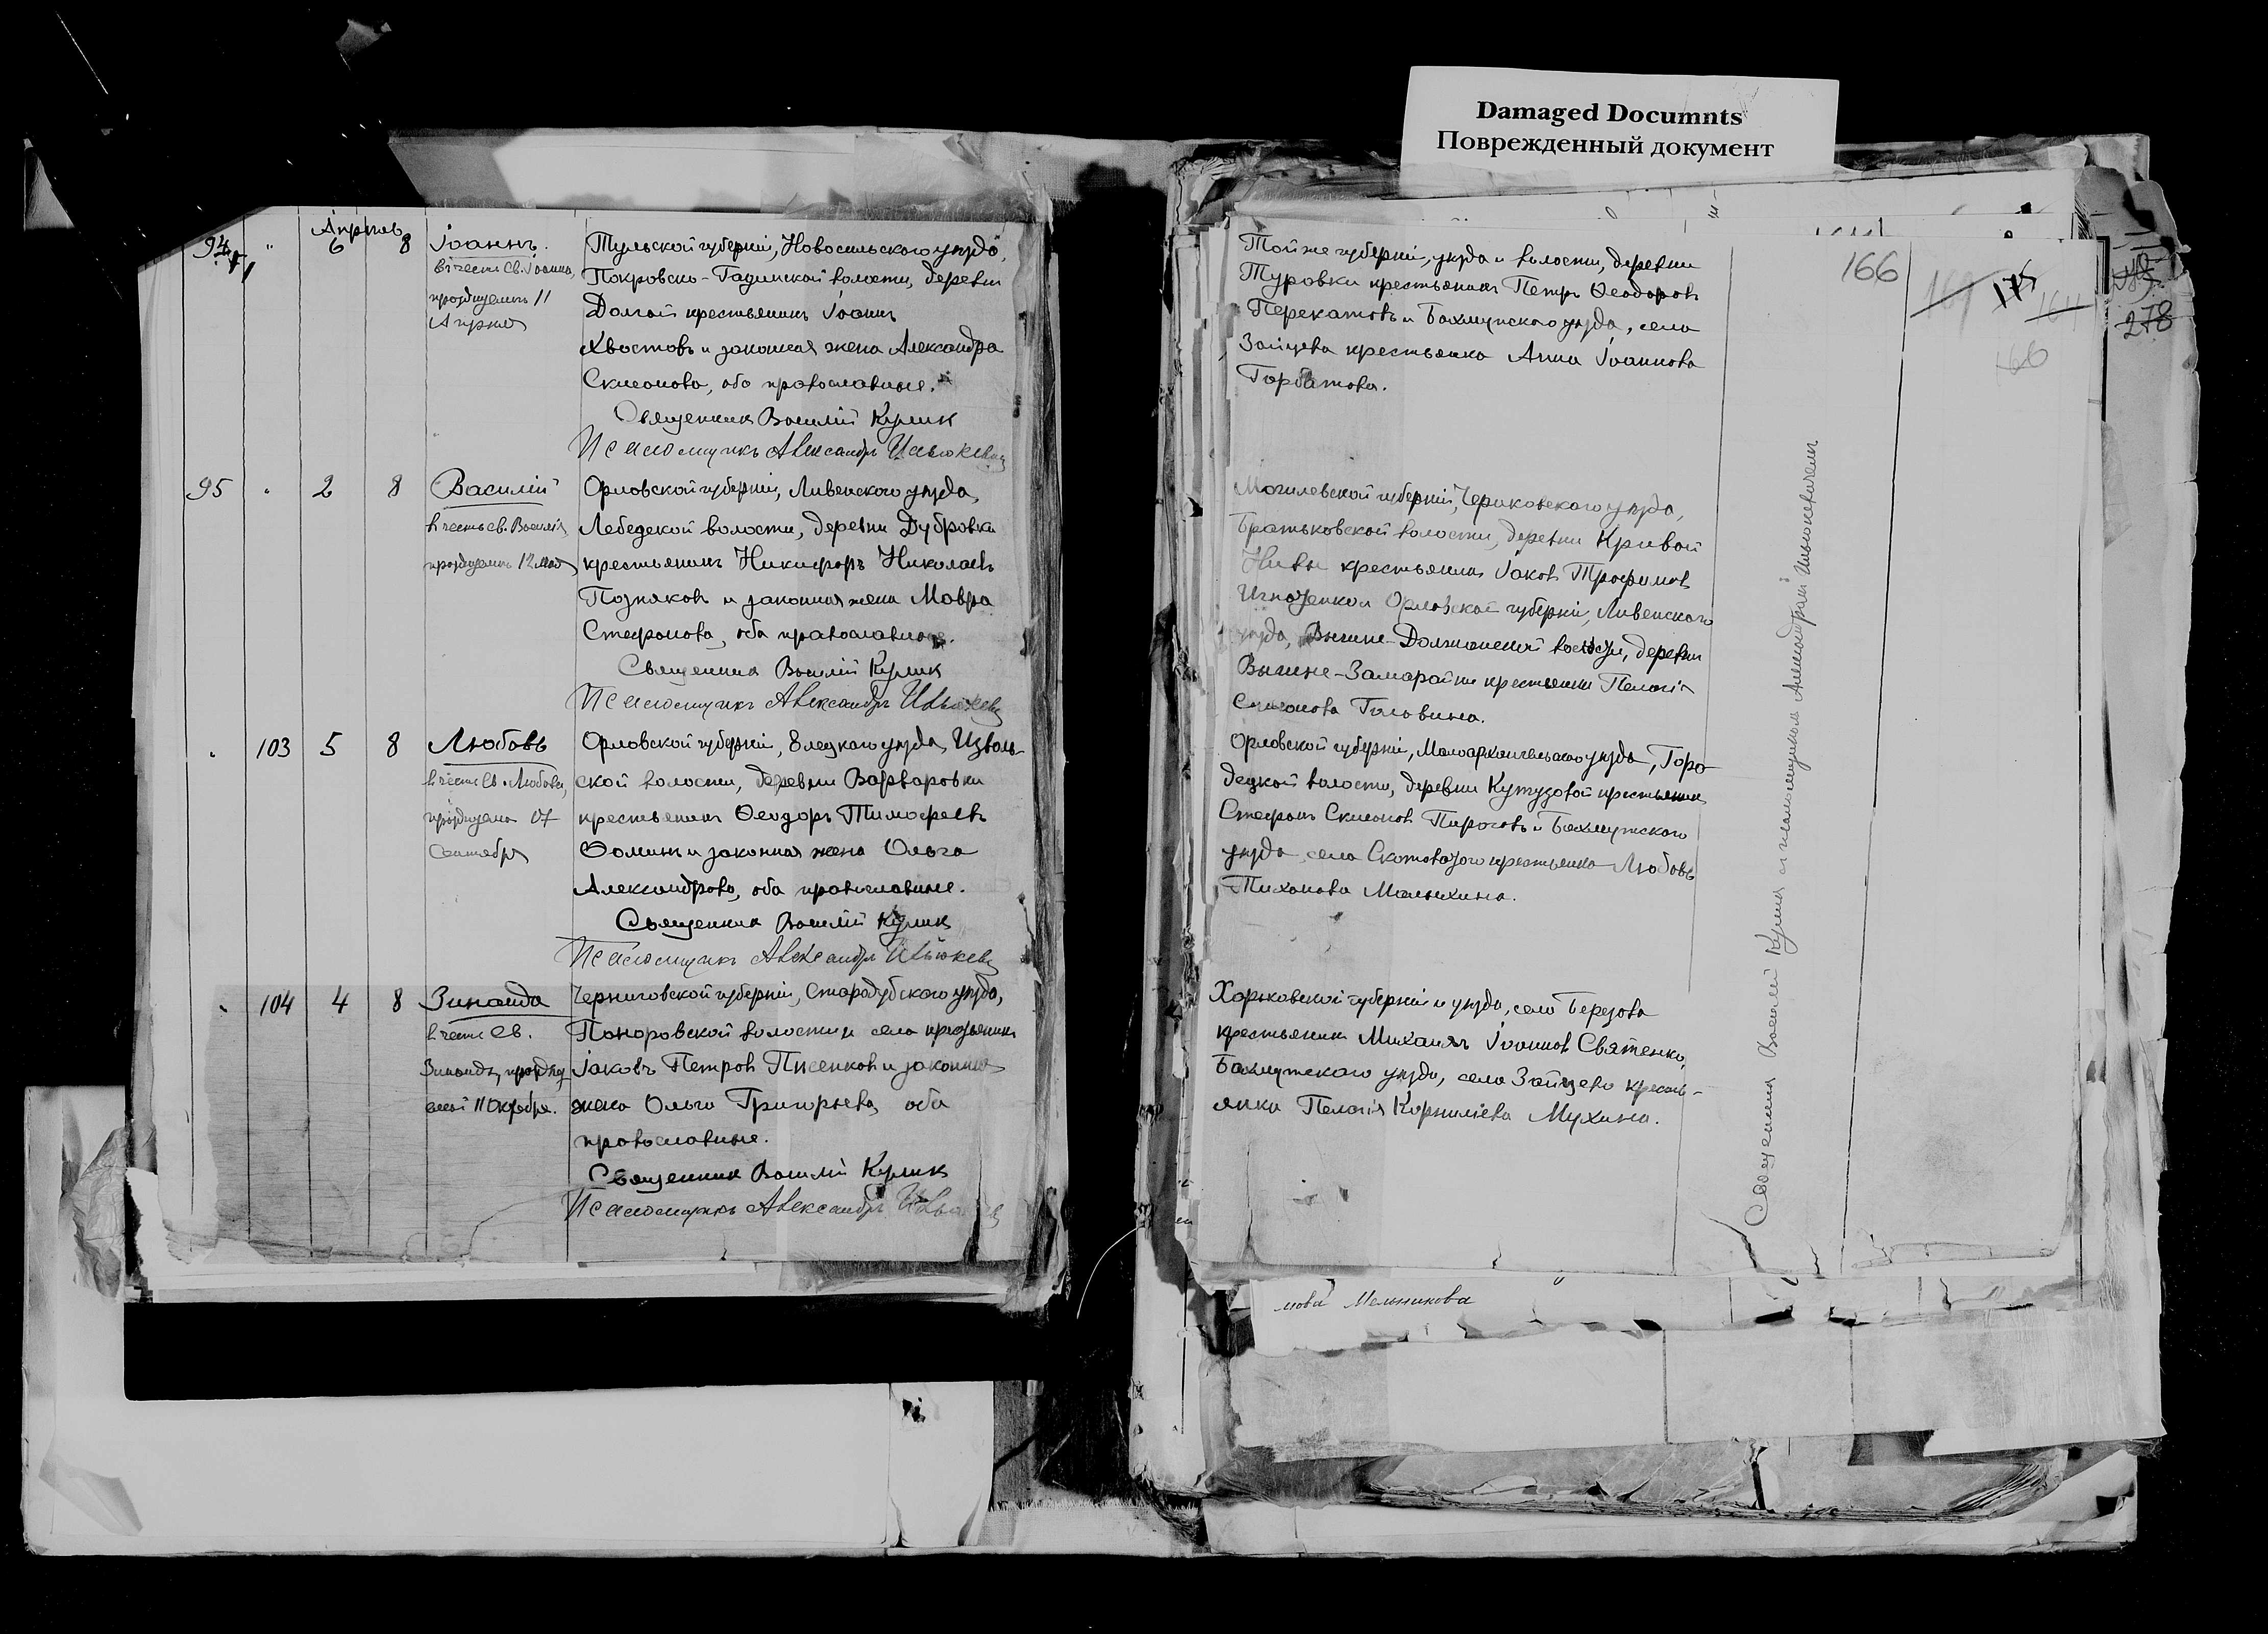 Damaged Documnts
Поврежденный документ
Апрѣль
94 " 6 8 Іоаннъ.
въ честь св. Іоанна,
празднуемъ 11
Апрѣля
Тульской губерніи, Новосильскаго уѣзда,
Покровско-Гадинской волости, деревни
Долгой крестьянинъ Іоаннъ
Хвостовъ и законная жена Александра
Симеонова, оба православные.
Священникъ Василій Куликъ
Псаломщикъ Александръ Ильюкевичъ
95 " 2 8 Василій
въ честь св. Василія,
празднуемъ 12 мая
Орловской губерніи, Ливенскаго уѣзда,
Лебедской волости, деревни Дубровка
крестьянинъ Никифоръ Николаевъ
Позняковъ и законная жена Мавра
Стефанова, оба православные.
Священникъ Василій Куликъ
Псаломщикъ Александръ
" 103 5 8 Любовь
въ честь св. Любови,
празднуемъ 17
Сентября
Орловской губерніи, Елецкаго уѣзда, Изваль-
ской волости, деревни Варваровки
крестьянинъ Ѳеодоръ Тимофеевъ
Ѳоминъ и законная жена Ольга
Александрова, оба православные.
Священникъ Василій Куликъ
Псаломщикъ Александръ Ильюкевичъ
" 104 4 8 Зинаида
въ честь св.
Зинаиды, праздну
емой 11 Октября.
Черниговской губерніи, Стародубскаго уѣзда,
Понуровской волости и села крестьянинъ
Іаковъ Петровъ Писенковъ и законная
жена Ольга Григорьева, оба
православные.
Священникъ Василій Куликъ
Псаломщикъ Александръ
166
278
Той же губерніи, уѣзда и волости, деревни
Туровки крестьянинъ Петръ Ѳеодоровъ
Перекатовъ и Бахмутскаго уѣзда, села
Зайцева крестьянка Анна Іоаннова
Горбатова.
Могилевской губерніи, Чериковскаго уѣзда,
Братьковской волости, деревни Кривой
Нивы крестьянинъ Іаковъ Трофимовъ
Игнатенко и Орловской губерніи, Ливенскаго
уѣзда, Вышне-Должанской волости, деревни
Вышне-Замарайки крестьянка Пелагія
Симеонова Головина.
Орловской губерніи, Малоархангельскаго уѣзда, Горо-
децкой волости, деревни Кутузовой крестьянинъ
Стефанъ Симеоновъ Пироговъ и Бахмутскаго
уѣзда, села Скотоватаго крестьянка Любовь
Тихонова Малыхина.
Харьковской губерніи и уѣзда, села Берегова
крестьянинъ Михаилъ Іоанновъ Святенко,
Бахмутскаго уѣзда, села Зайцева кресть-
янка Пелагія Корниліева Мухина.
Священникъ Василій Куликъ съ псаломщикомъ Александромъ Ильюкевичемъ
нова Мельникова